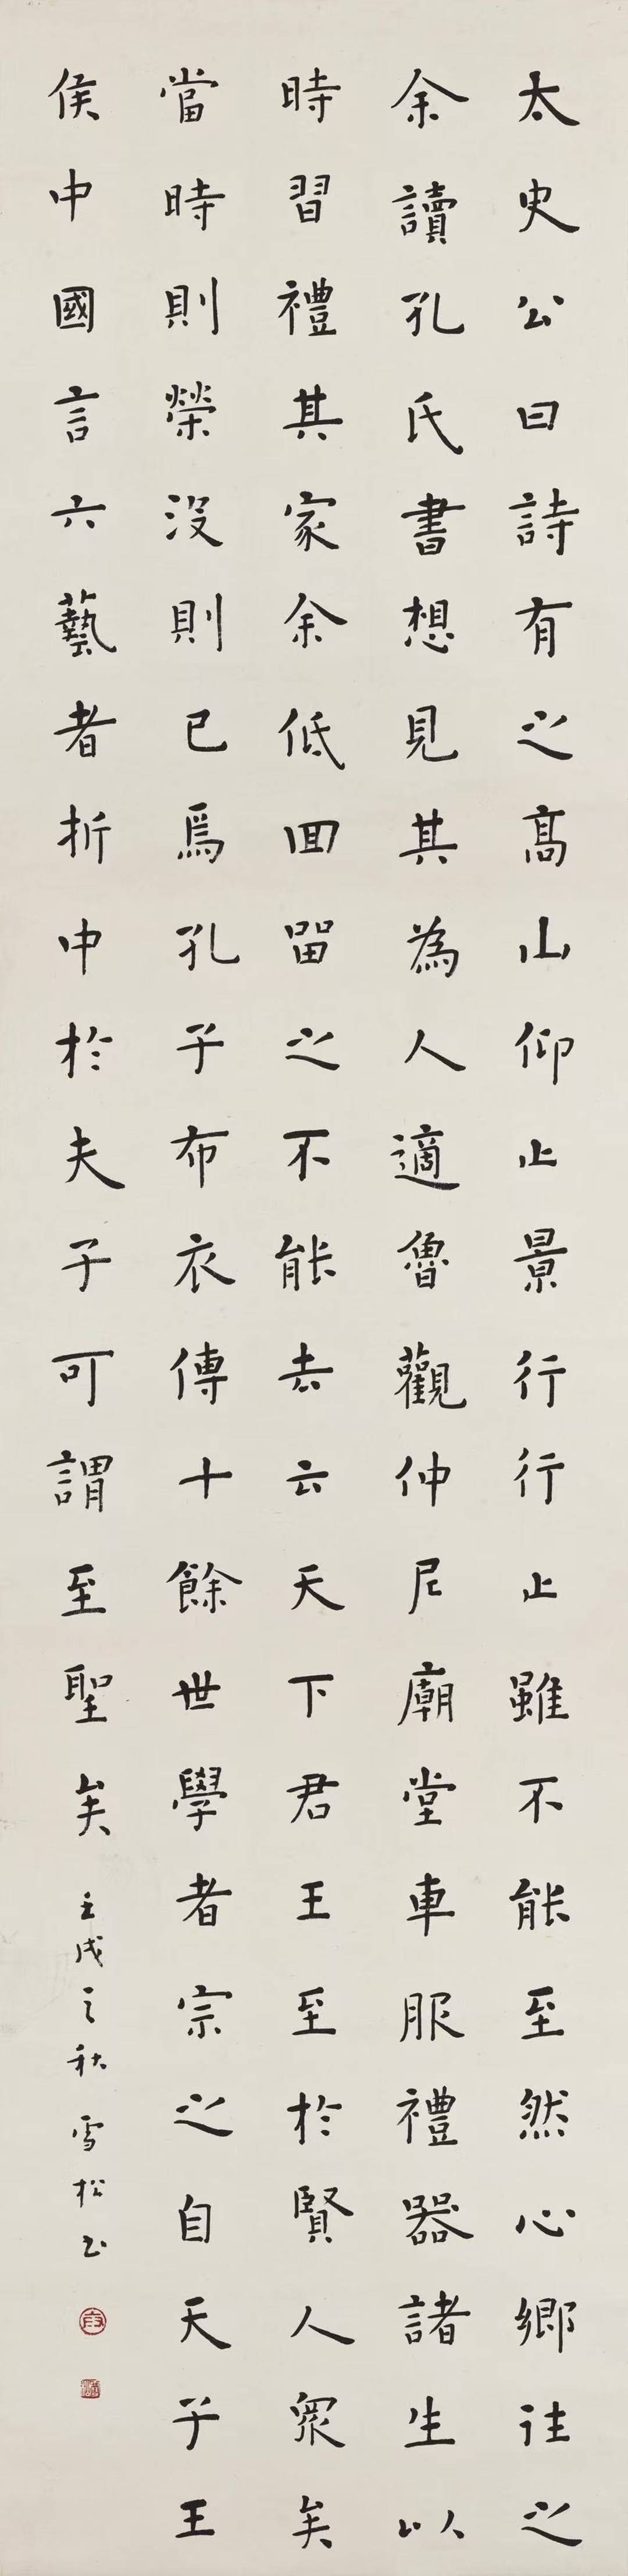 太史公曰詩有之高山仰止景行行止雖不能至然心鄉往之
余讀孔氏書想見其為人適魯觀仲尼廟堂車服禮器諸生以
時習禮其家余低回留之不能去云天下君王至於賢人眾矣
當時則榮沒則已焉孔子布衣傳十餘世學者宗之自天子王
侯中國言六藝者折中於夫子可謂至聖矣壬戌之秋雪松書